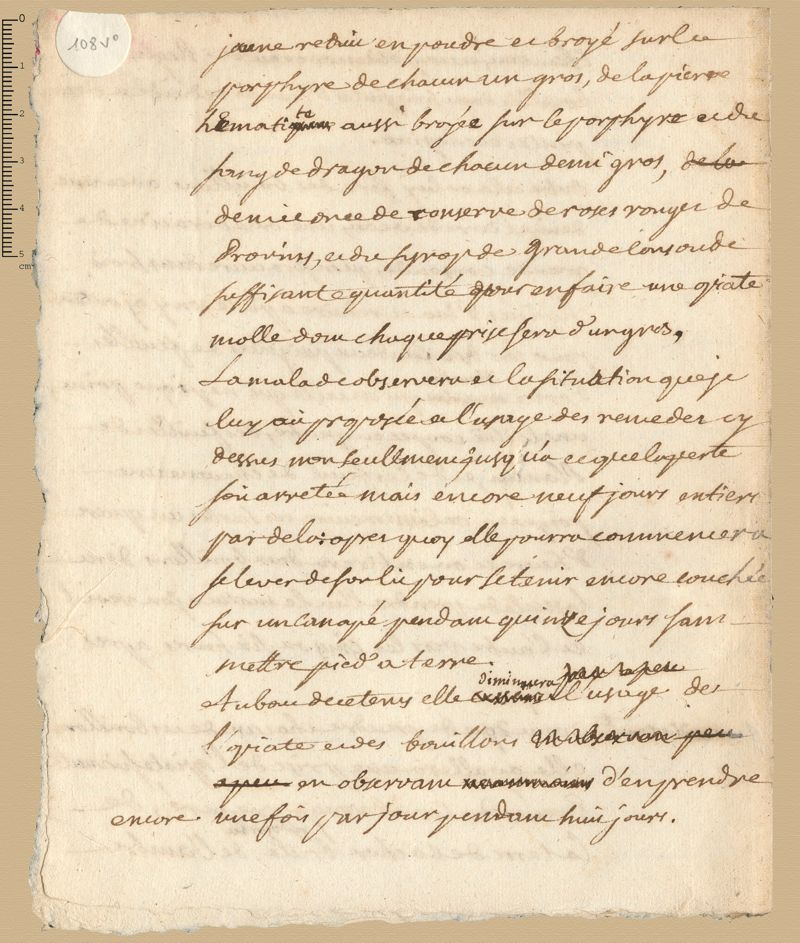 108 v°
jaune reduit en poudre et broyé sur le
porphyre de chacun un gros, de la pierre
hematite aussi broyée sur le porphyre et du
sang de dragon de chacun demi gros, de la
demie once de conserve de roses rouges de
Provins, et du syrop de grande consoude
suffisante quantité pour en faire une opiate
molle dont chaque prise sera d'un gros.
La malade observera et la situation que je
luy ai proposée et l'usage des remedes cy
dessus non seullement jusqu'a ce que la perte
soit arretée mais encore neuf jours entiers
par dela: apres quoy elle pourra commencer a
se lever de son lit pour se tenir encore couchée
sur un canapé pendant quinze jours sans
mettre pied a terre.
diminuera peu a peu
et au bout de ce tems elle l'usage des
l'opiate et des bouillons en observant peu
a peu en observant d'en prendre
encore une fois par jour pendant huit jours.